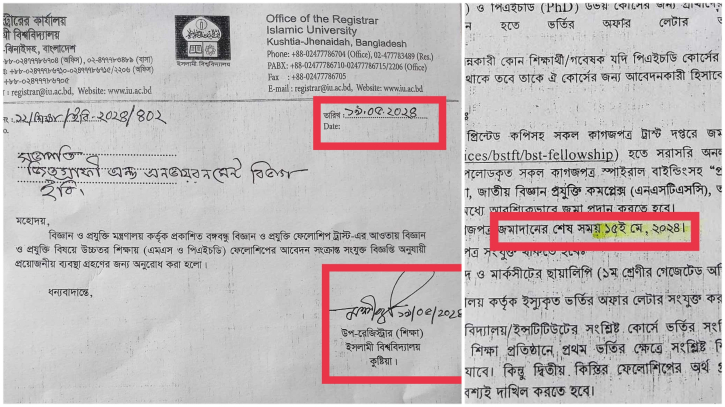 স্ট্রারের কার্যালয়
ী বিশ্ববিদ্যালয়
-ঝিনাইদহ, বাংলাদেশ
: registrar@iu.ac.bd, Website: www.iu.ac.bd
ইসলামী বিশ্ববিদ্যালয়
Office of the Registrar
Islamic University
Kushtia-Jhenaidah, Bangladesh
Phone: +88-02477786704 (Office), 02-477783489 (Res.)
PABX: +88-02477786710-02477786715/2206 (Office)
Fax : +88-02477786705
E-mail : registrar@iu.ac.bd, Website: www.iu.ac.bd
ইবি-২০২৪/৪০২
তারিখ : ১৯.০৫.২০২৪
Date:
সভাপতি
জিওগ্রাফী অ্যান্ড এনভায়রনমেন্ট বিভাগ
ইবি।
মহোদয়,
বিজ্ঞান ও প্রযুক্তি মন্ত্রণালয় কর্তৃক প্রকাশিত বঙ্গবন্ধু বিজ্ঞান ও প্রযুক্তি ফেলোশিপ ট্রাস্ট-এর আওতায় বিজ্ঞান
ও প্রযুক্তি বিষয়ে উচ্চতর শিক্ষায় (এমএস ও পিএইচডি) ফেলোশিপের আবেদন সংক্রান্ত সংযুক্ত বিজ্ঞপ্তি অনুযায়ী
প্রয়োজনীয় ব্যবস্থা গ্রহণের জন্য অনুরোধ করা হলো।
ধন্যবাদান্তে,
১৯/০৫/২০২৪
উপ-রেজিস্ট্রার (শিক্ষা)
ইসলামী বিশ্ববিদ্যালয়
কুষ্টিয়া।
) ও পিএইচডি (PhD) উভয় কোর্সের জন্য
হতে ভর্তির অফার লেটার
কারী কোন শিক্ষার্থী/গবেষক যদি পিএইচডি কোর্সের
থাকে তবে তাকে ঐ কোর্সের জন্য আবেদনকারী হিসাবে
প্রিন্টেড কপিসহ সকল কাগজপত্র ট্রাস্ট দপ্তরে জম
ices/bstft/bst-fellowship) হতে সরাসরি অনল
পলোডকৃত সকল কাগজপত্র স্পাইরাল বাইন্ডিংসহ
, জাতীয় বিজ্ঞান প্রযুক্তি কমপ্লেক্স (এনএসটিএসসি),
মধ্যে আবশ্যিকভাবে জমা প্রদান করতে হবে।
জপত্র জমাদানের শেষ সময় ১৫ই মে, ২০২৪।
পত্র সংযুক্ত থাকতে হবেঃ
দ ও মার্কসীটের ছায়ালিপি (১ম শ্রেণীর গেজেটেড অফি
ালয় কর্তৃক ইস্যুকৃত ভর্তির অফার লেটার সংযুক্ত কর
বিদ্যালয়/ইন্সটিটিউটের সংশ্লিষ্ট কোর্সে ভর্তির সং
শিক্ষা প্রতিষ্ঠানে প্রথম ভর্তির ক্ষেত্রে সংশ্লিষ্ট
যাবে। কিন্তু দ্বিতীয় কিস্তির ফেলোশিপের অর্থ
বশ্যই দাখিল করতে হবে।